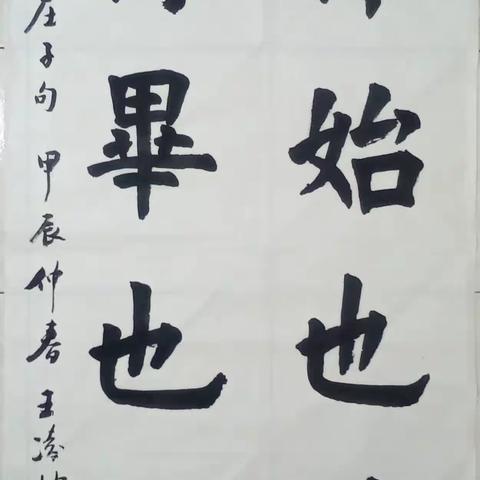 始也
畢也
庄子句 甲辰仲春 王凌